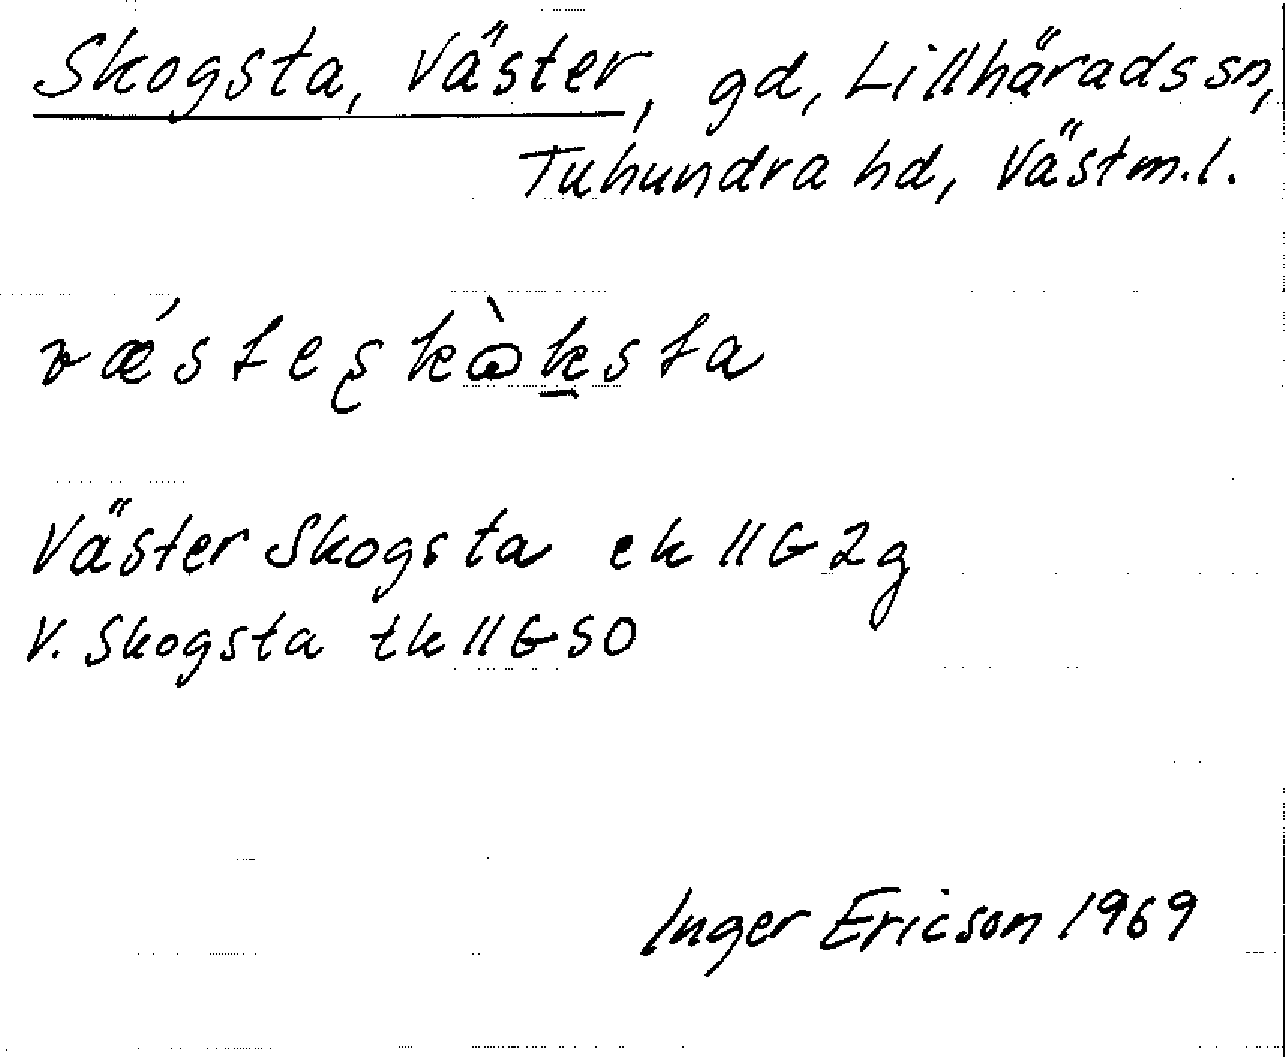 Skogsta, Väster, gd, Lillhärads sn,
Tuhundra hd, Västm.l.
vǽsteʂkὼksta
Väster Skogsta ek 11G2g
V. Skogsta tk 11G SO
Inger Ericson 1969